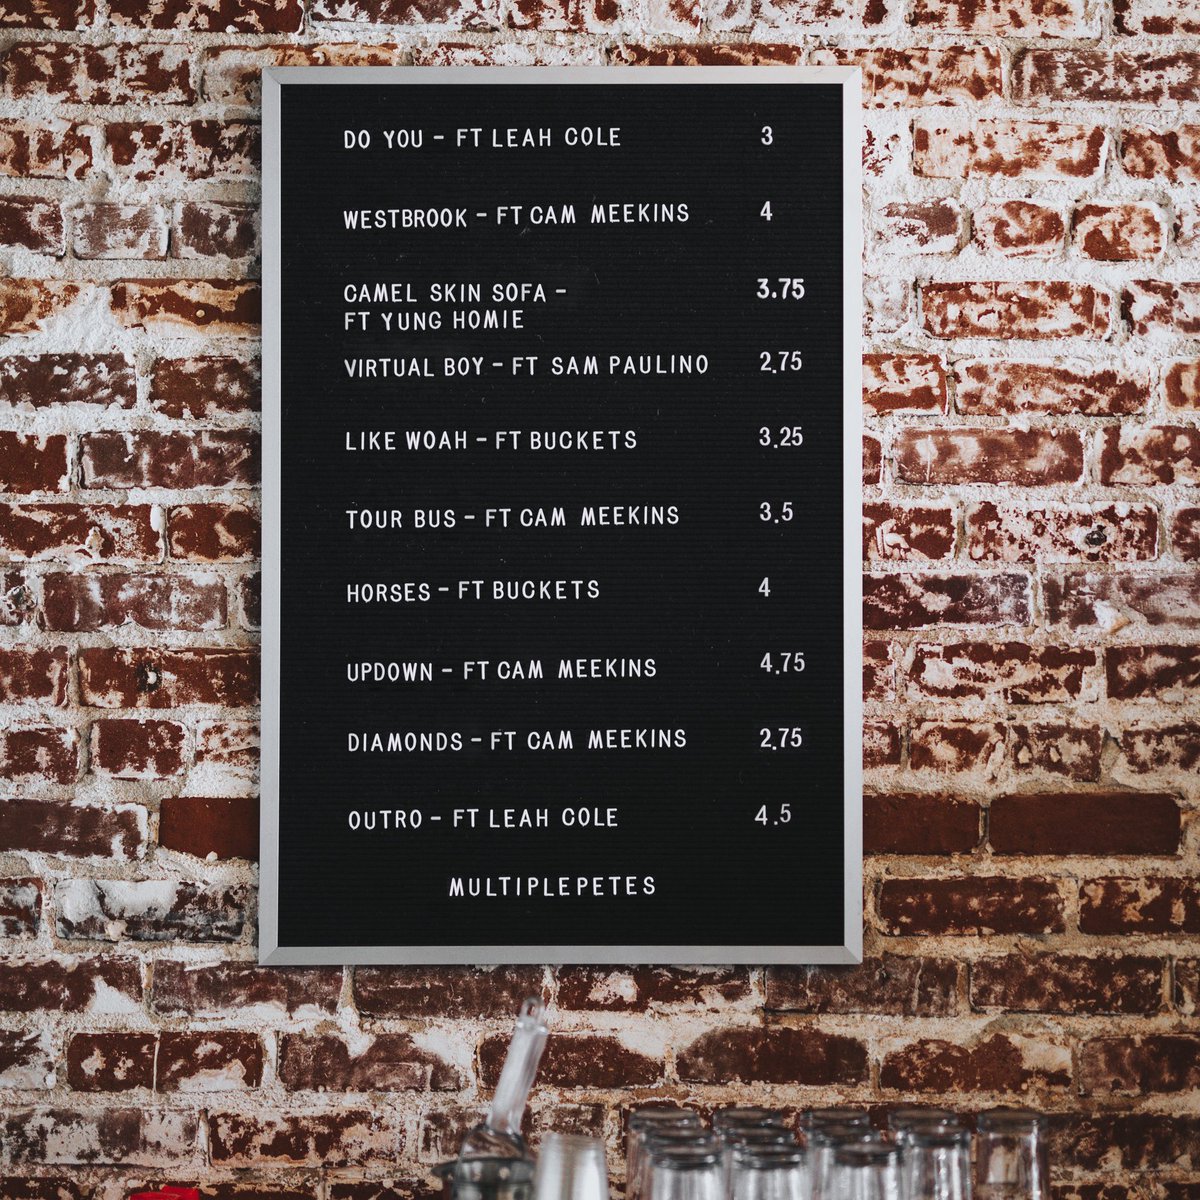 DO YOU - FT LEAH COLE 3
WESTBROOK - FT CAM MEEKINS 4
CAMEL SKIN SOFA - 3.75
FT YUNG HOMIE
VIRTUAL BOY - FT SAM PAULINO 2.75
LIKE WOAH - FT BUCKETS 3.25
TOUR BUS - FT CAM MEEKINS 3.5
HORSES - FT BUCKETS 4
UPDOWN - FT CAM MEEKINS 4.75
DIAMONDS - FT CAM MEEKINS 2.75
OUTRO - FT LEAH COLE 4.5
MULTIPLEPETES